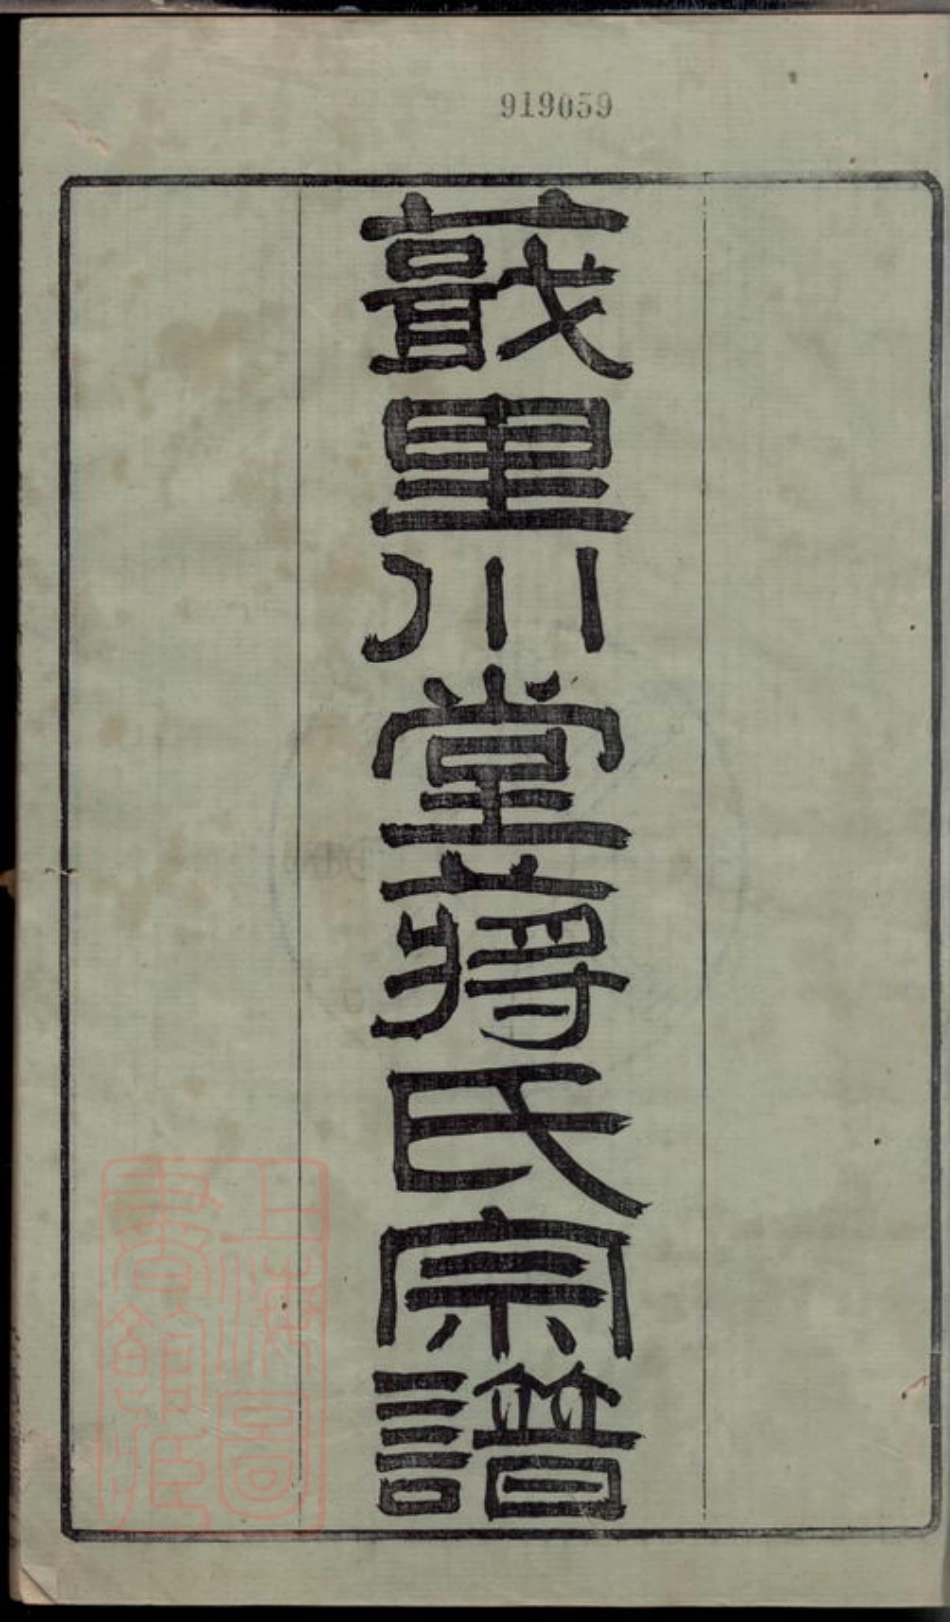 919059
蕺里川堂蔣氏宗譜
上海圖
書館藏